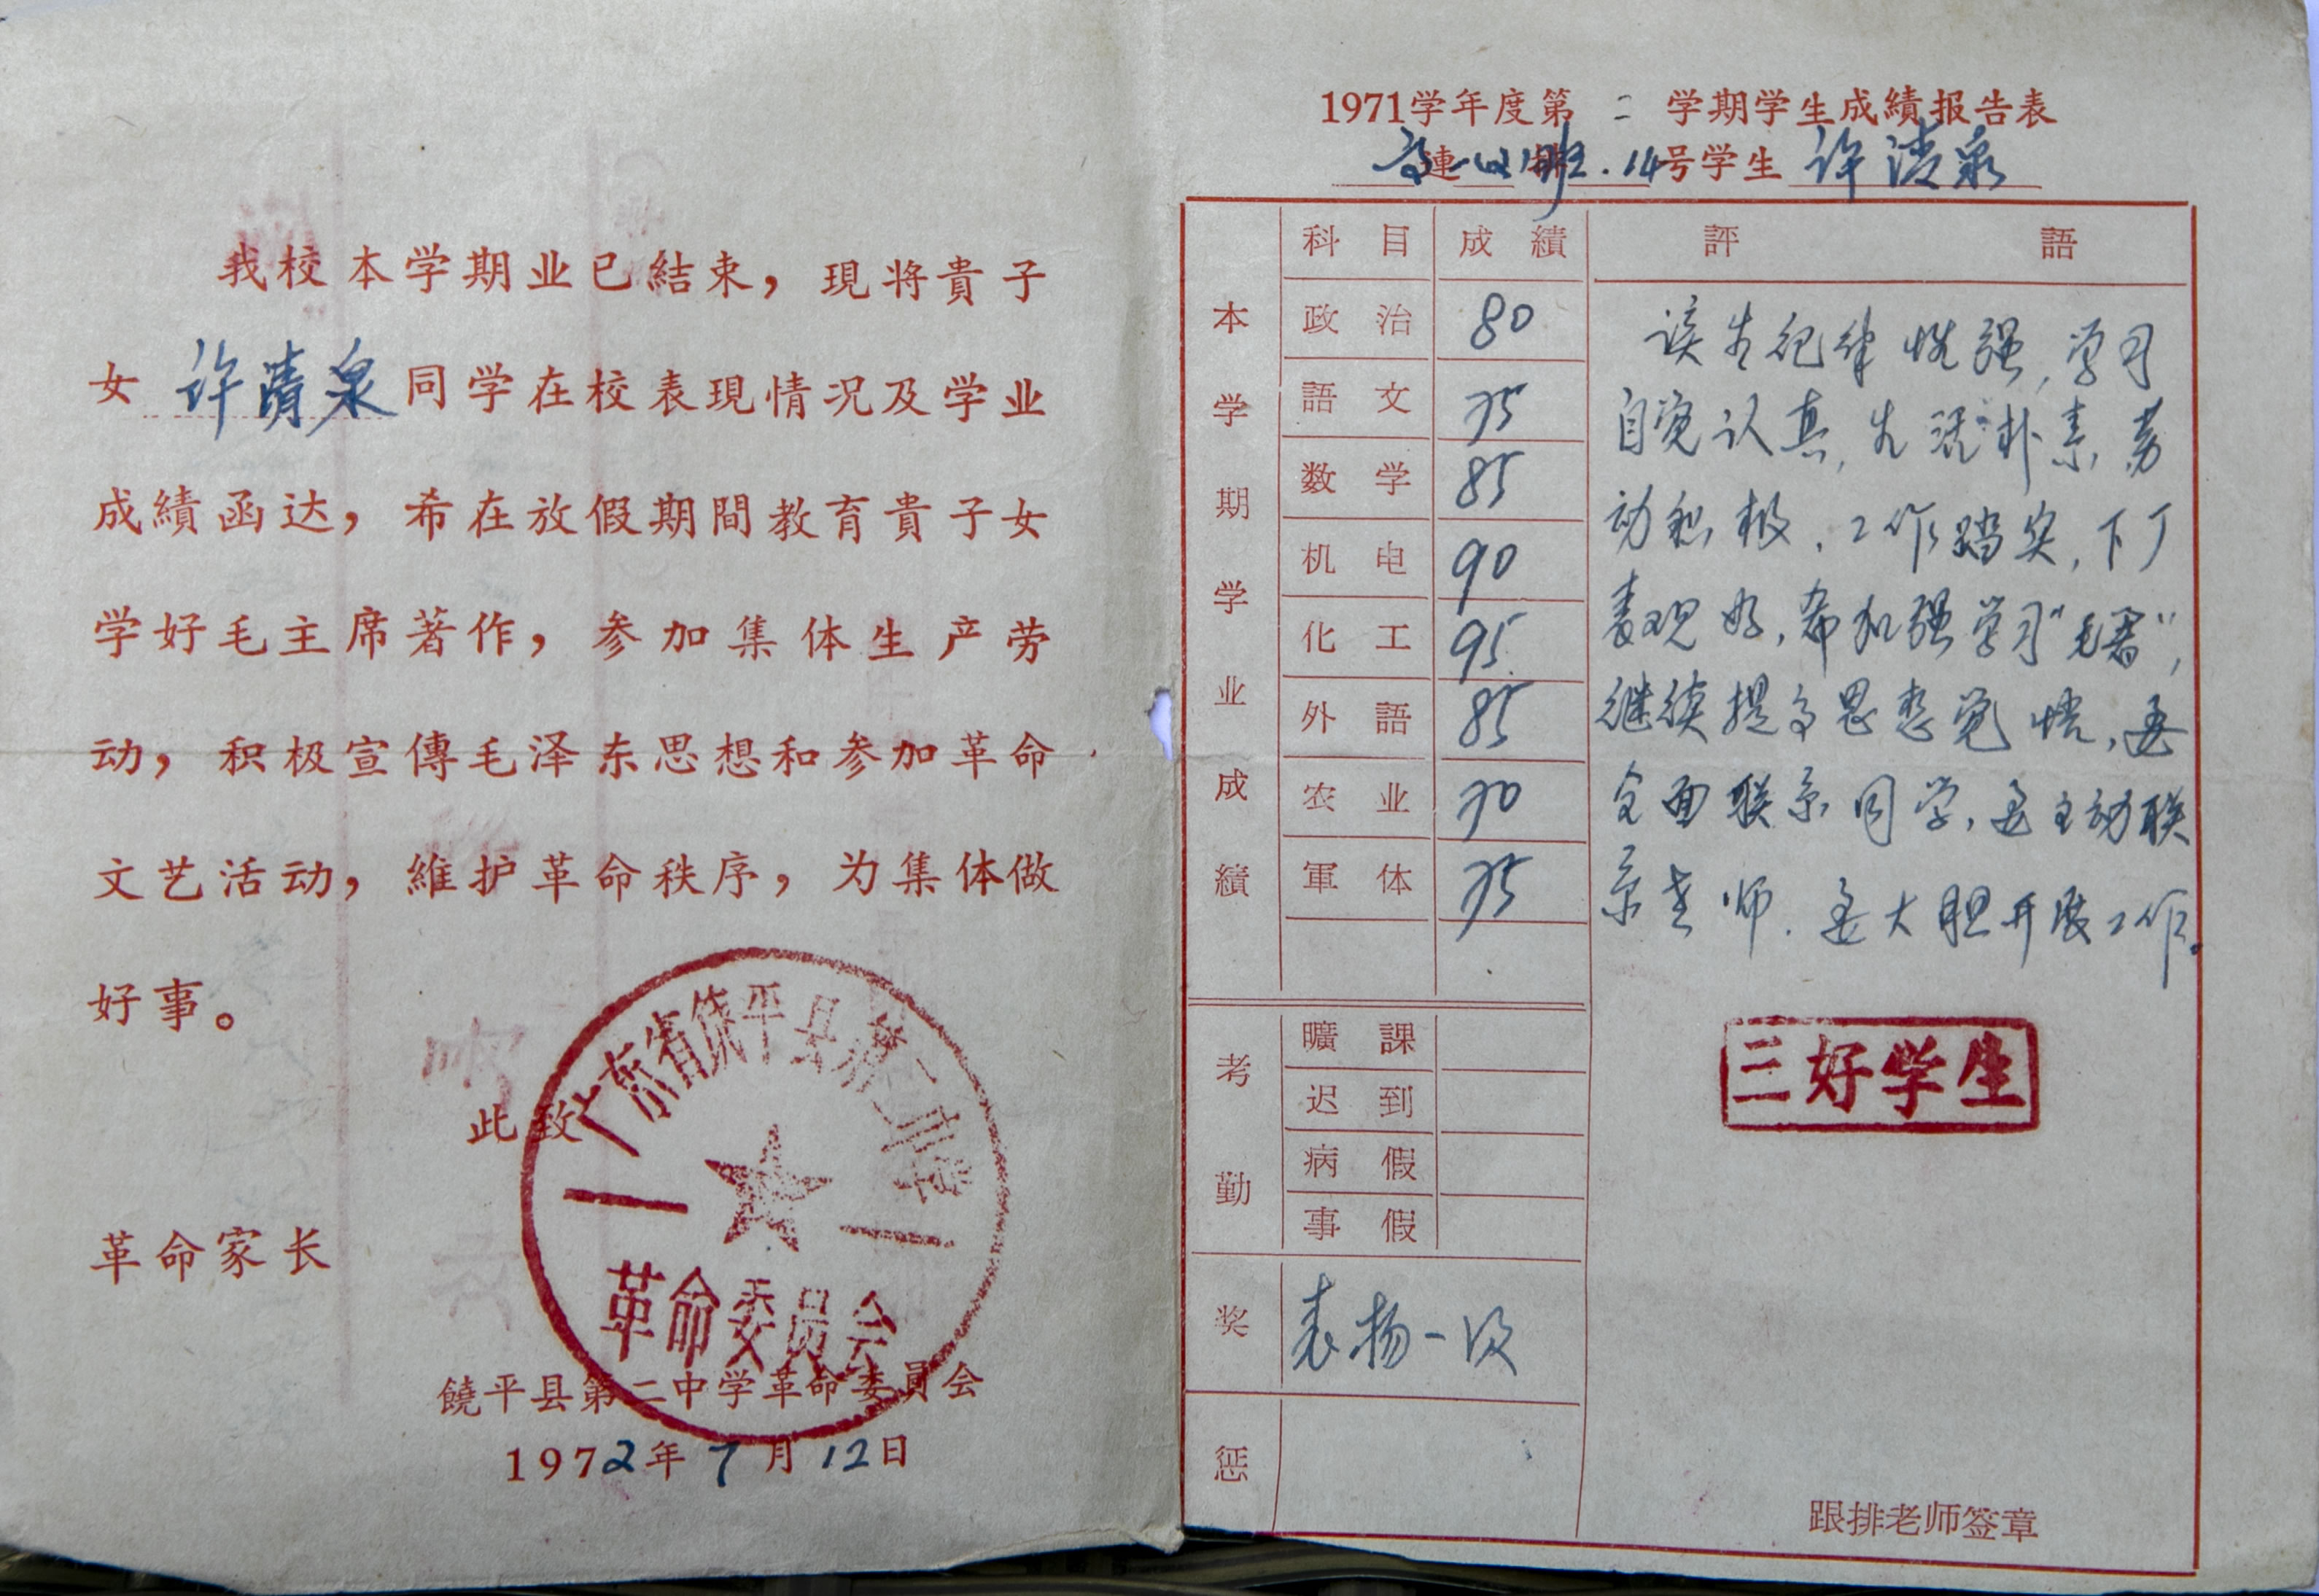 我校本学期业已結束，現将貴子
女 许清泉 同学在校表現情况及学业
成績函达，希在放假期間教育貴子女
学好毛主席著作，参加集体生产劳
动，积极宣傳毛泽东思想和参加革命
文艺活动，維护革命秩序，为集体做
好事。
此致
革命家长
广东省饶平县第二中学
革命委员会
饒平县第二中学革命委員会
1972年7月12日
1971学年度第二学期学生成績报告表
高連一(4)班.14号学生 许清泉
本学期学业成績
科目 成績 評語
政治 80
語文 75
数学 85
机电 90
化工 95
外語 85
农业 70
軍体 75
该生纪律性强,学习
自觉认真,生活朴素,劳
动积极,工作踏实,下厂
表现好,希加强学习"毛著",
继续提高思想觉悟,要
全面联系同学,要主动联
系老师.要大胆开展工作。
三好学生
考勤
曠課
迟到
病假
事假
奖 表扬一次
惩
跟排老师签章